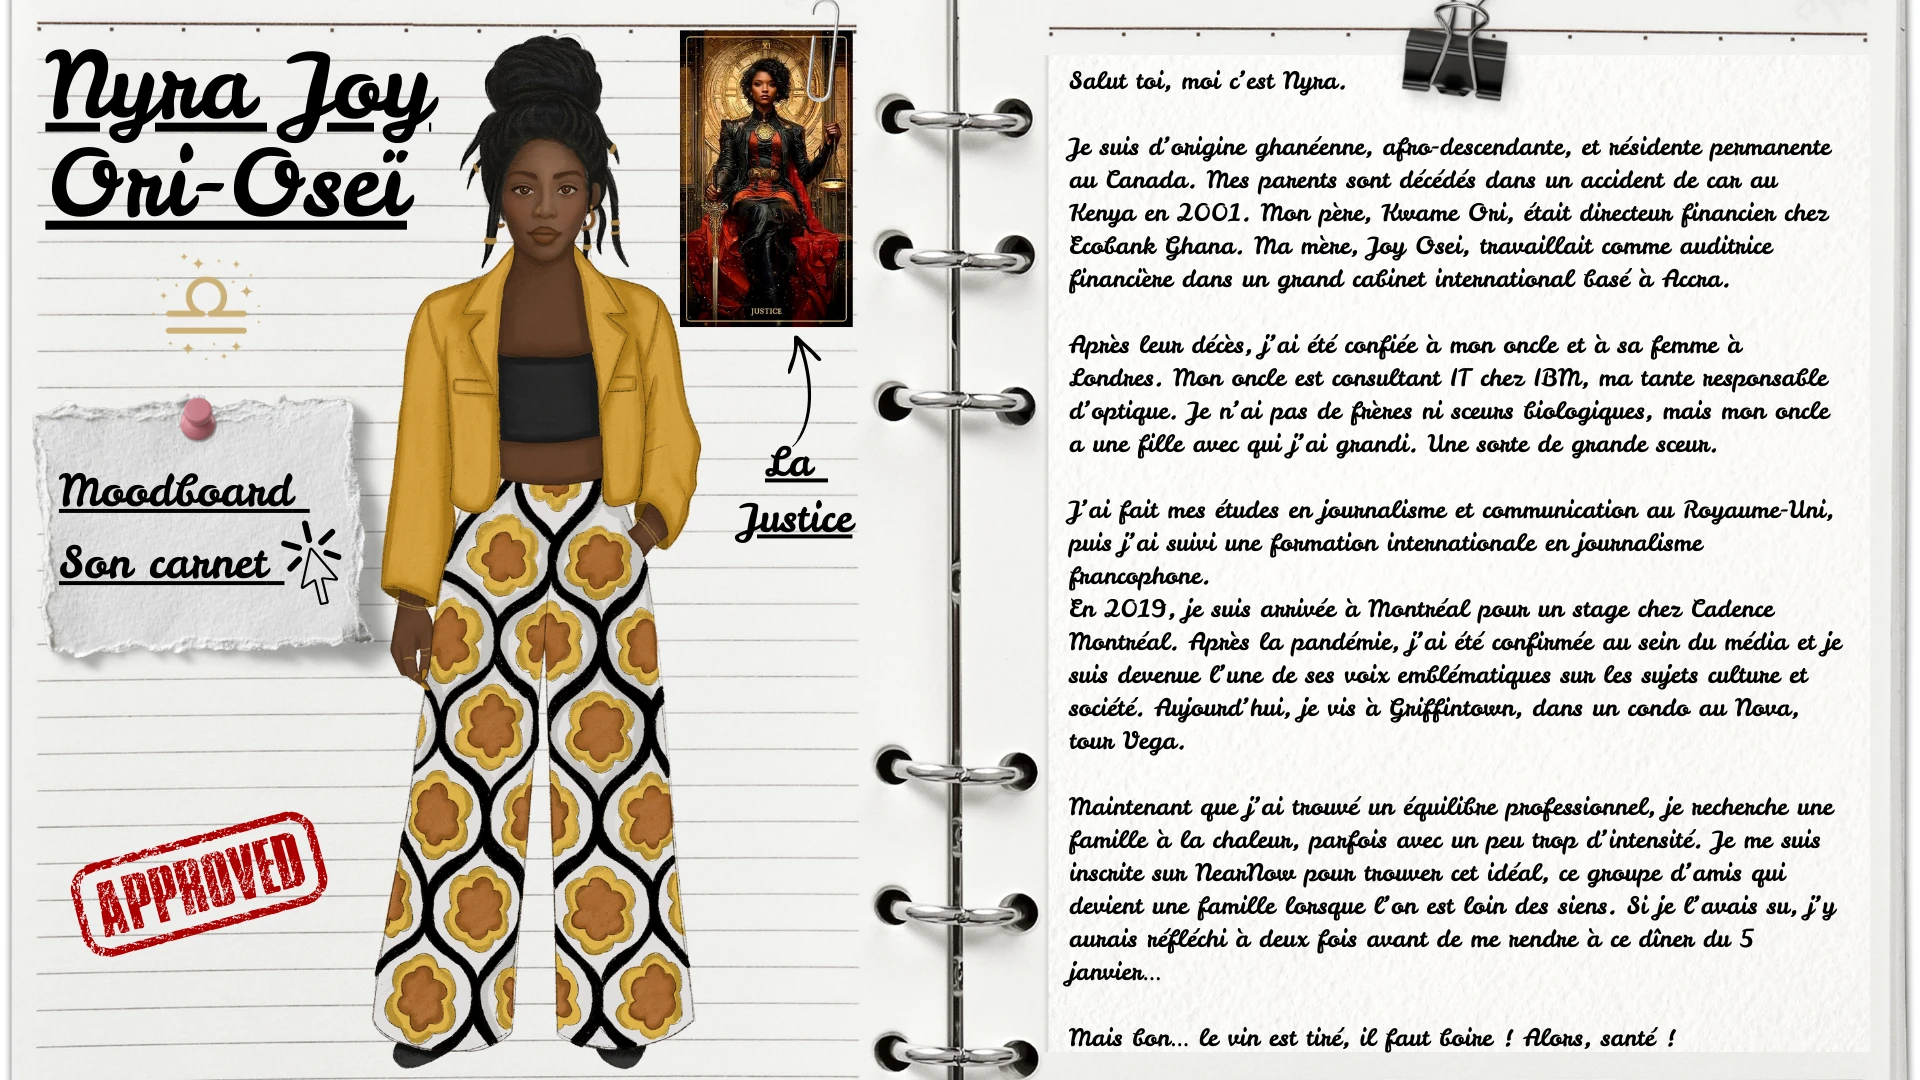 Nyra Joy
Ori-Oseï
XI
JUSTICE
La
Justice
Moodboard
Son carnet
APPROVED
Salut toi, moi c'est Nyra.
Je suis d'origine ghanéenne, afro-descendante, et résidente permanente
au Canada. Mes parents sont décédés dans un accident de car au
Kenya en 2001. Mon père, Kwame Ori, était directeur financier chez
Ecobank Ghana. Ma mère, Joy Osei, travaillait comme auditrice
financière dans un grand cabinet international basé à Accra.
Après leur décès, j'ai été confiée à mon oncle et à sa femme à
Londres. Mon oncle est consultant IT chez IBM, ma tante responsable
d'optique. Je n'ai pas de frères ni sœurs biologiques, mais mon oncle
a une fille avec qui j'ai grandi. Une sorte de grande sœur.
J'ai fait mes études en journalisme et communication au Royaume-Uni,
puis j'ai suivi une formation internationale en journalisme
francophone.
En 2019, je suis arrivée à Montréal pour un stage chez Cadence
Montréal. Après la pandémie, j'ai été confirmée au sein du média et je
suis devenue l'une de ses voix emblématiques sur les sujets culture et
société. Aujourd'hui, je vis à Griffintown, dans un condo au Nova,
tour Vega.
Maintenant que j'ai trouvé un équilibre professionnel, je recherche une
famille à la chaleur, parfois avec un peu trop d'intensité. Je me suis
inscrite sur NearNow pour trouver cet idéal, ce groupe d'amis qui
devient une famille lorsque l'on est loin des siens. Si je l'avais su, j'y
aurais réfléchi à deux fois avant de me rendre à ce dîner du 5
janvier...
Mais bon... le vin est tiré, il faut boire ! Alors, santé !